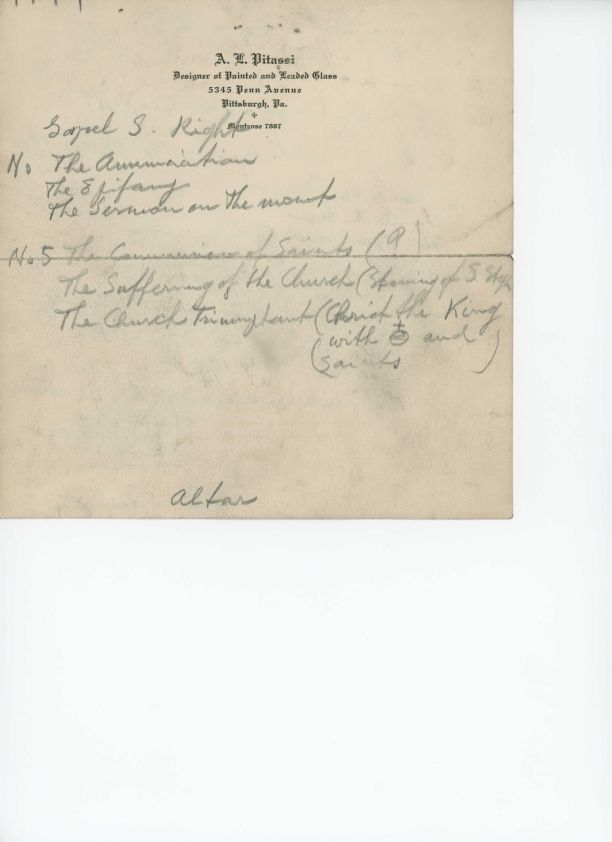 A. L. Pitassi
Designer of Painted and Leaded Glass
5345 Penn Avenue
Pittsburgh, Pa.
Montrose 7887
Gospel S. Right
No The Annunciation
The Epifany
The Sermon on the mount
No 5 The Communion of Saints (9)
The Suffering of the Church (Stoning of S.
The Church Triumphant (Christ the King
(with and )
(Saints
Altar